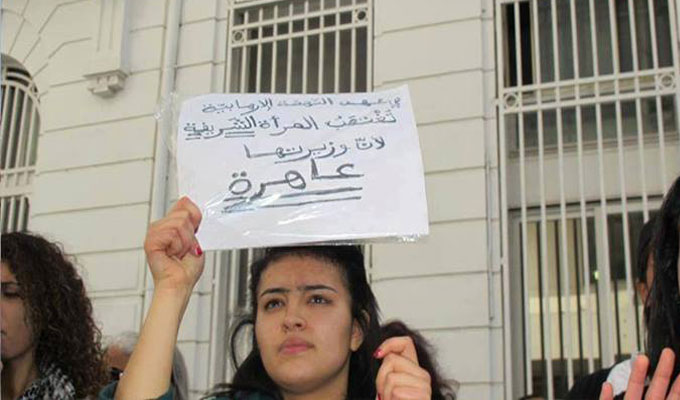 في عهد النهضة الإرهابيّة
تُغتصب المرأة الشريفة
لأنّ وزيرتها
عاهرة